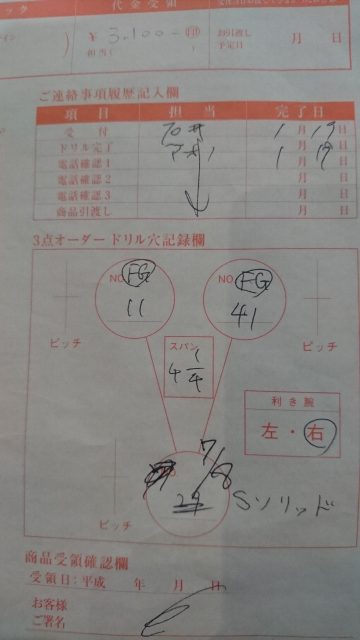 ック 代金受領
¥ 3,100- ㊞ お引渡し 月 日
担当( ) 予定日
ご連絡事項履歴記入欄
項目 担当 完了日
受付 1月19日
ドリル完了 1月19日
電話確認1 月 日
電話確認2 月 日
電話確認3 月 日
商品引渡し 月 日
3点オーダー ドリル穴記録欄
NO. FG NO. FG
11 41
ピッチ ピッチ
スパン
4 1/4
利き腕
左・右
7/8
29 Sソリッド
ピッチ
商品受領確認欄
受領日:平成 年 月 日
お客様
ご署名